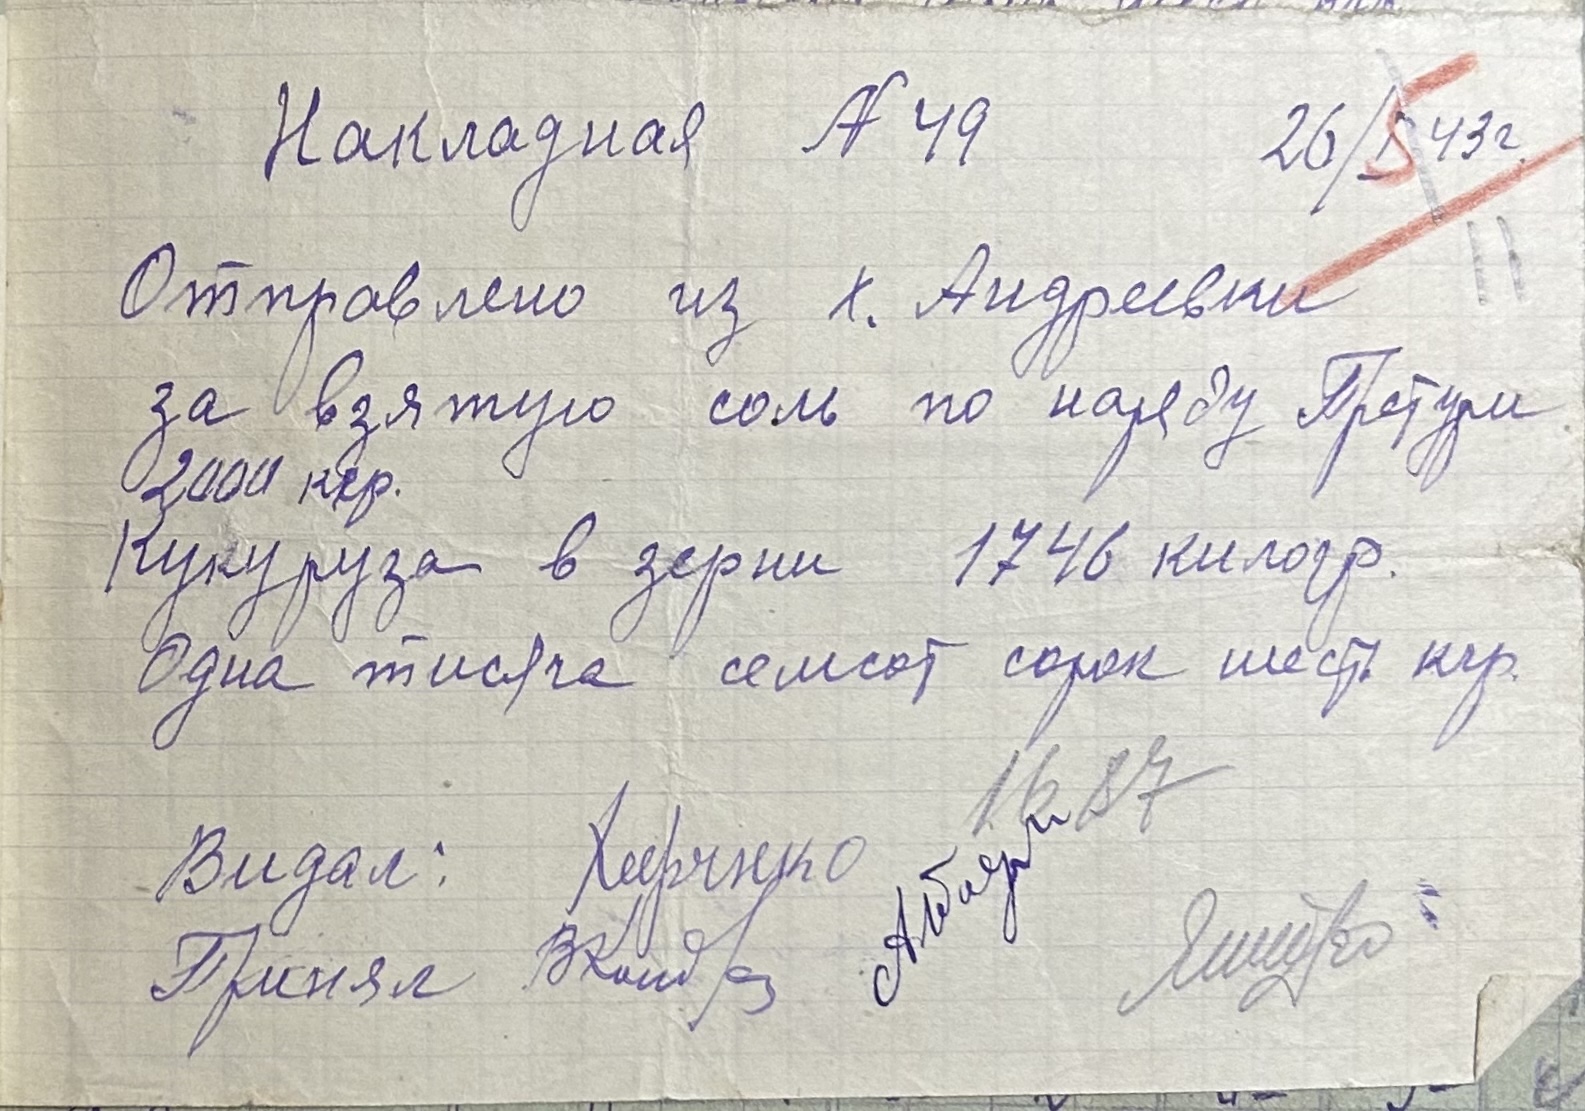 Накладная N 49 26/5 43г.
Отправлено из х. Андреевки
за взятую соль по наряду Претури
2000 кгр.
Кукуруза в зерни 1746 килогр.
Одна тисяча семсот сорок шест кгр.
1687
Видал: Харченко
Принял